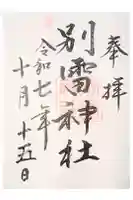 奉拝
別雷神社
令和七年
十月十五日